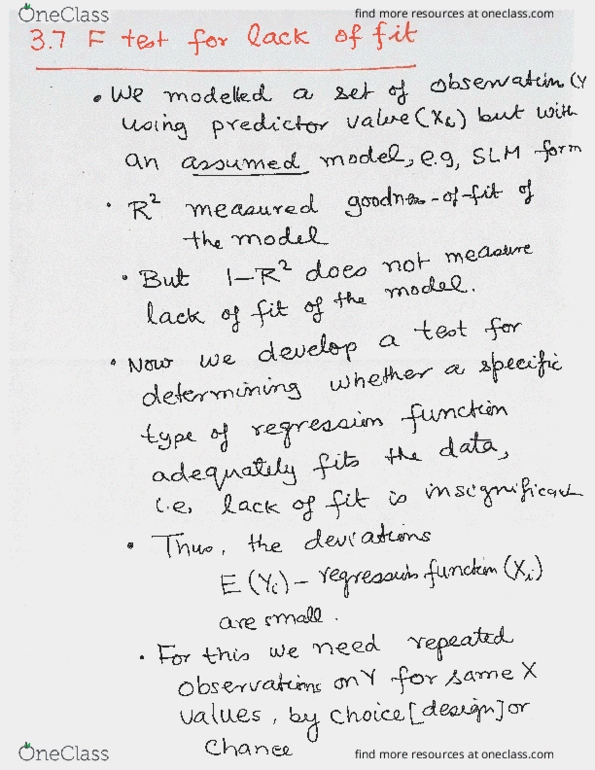 OneClass
find more resources at oneclass.com
3.7 F test for lack of fit
• We modelled a set of observation (Y
using predictor value (Xi) but with
an assumed model, e.g, SLM form
• R² measured goodness-of-fit of
the model
• But 1-R² does not measure
lack of fit of the model.
• Now we develop a test for
determining whether a specific
type of regression function
adequately fits the data,
i.e. lack of fit is insignificant
• Thus, the deviations
E (Yi) - regression function (Xi)
are small.
• For this we need repeated
observations on Y for same X
values, by choice [design] or
chance
OneClass
find more resources at oneclass.com